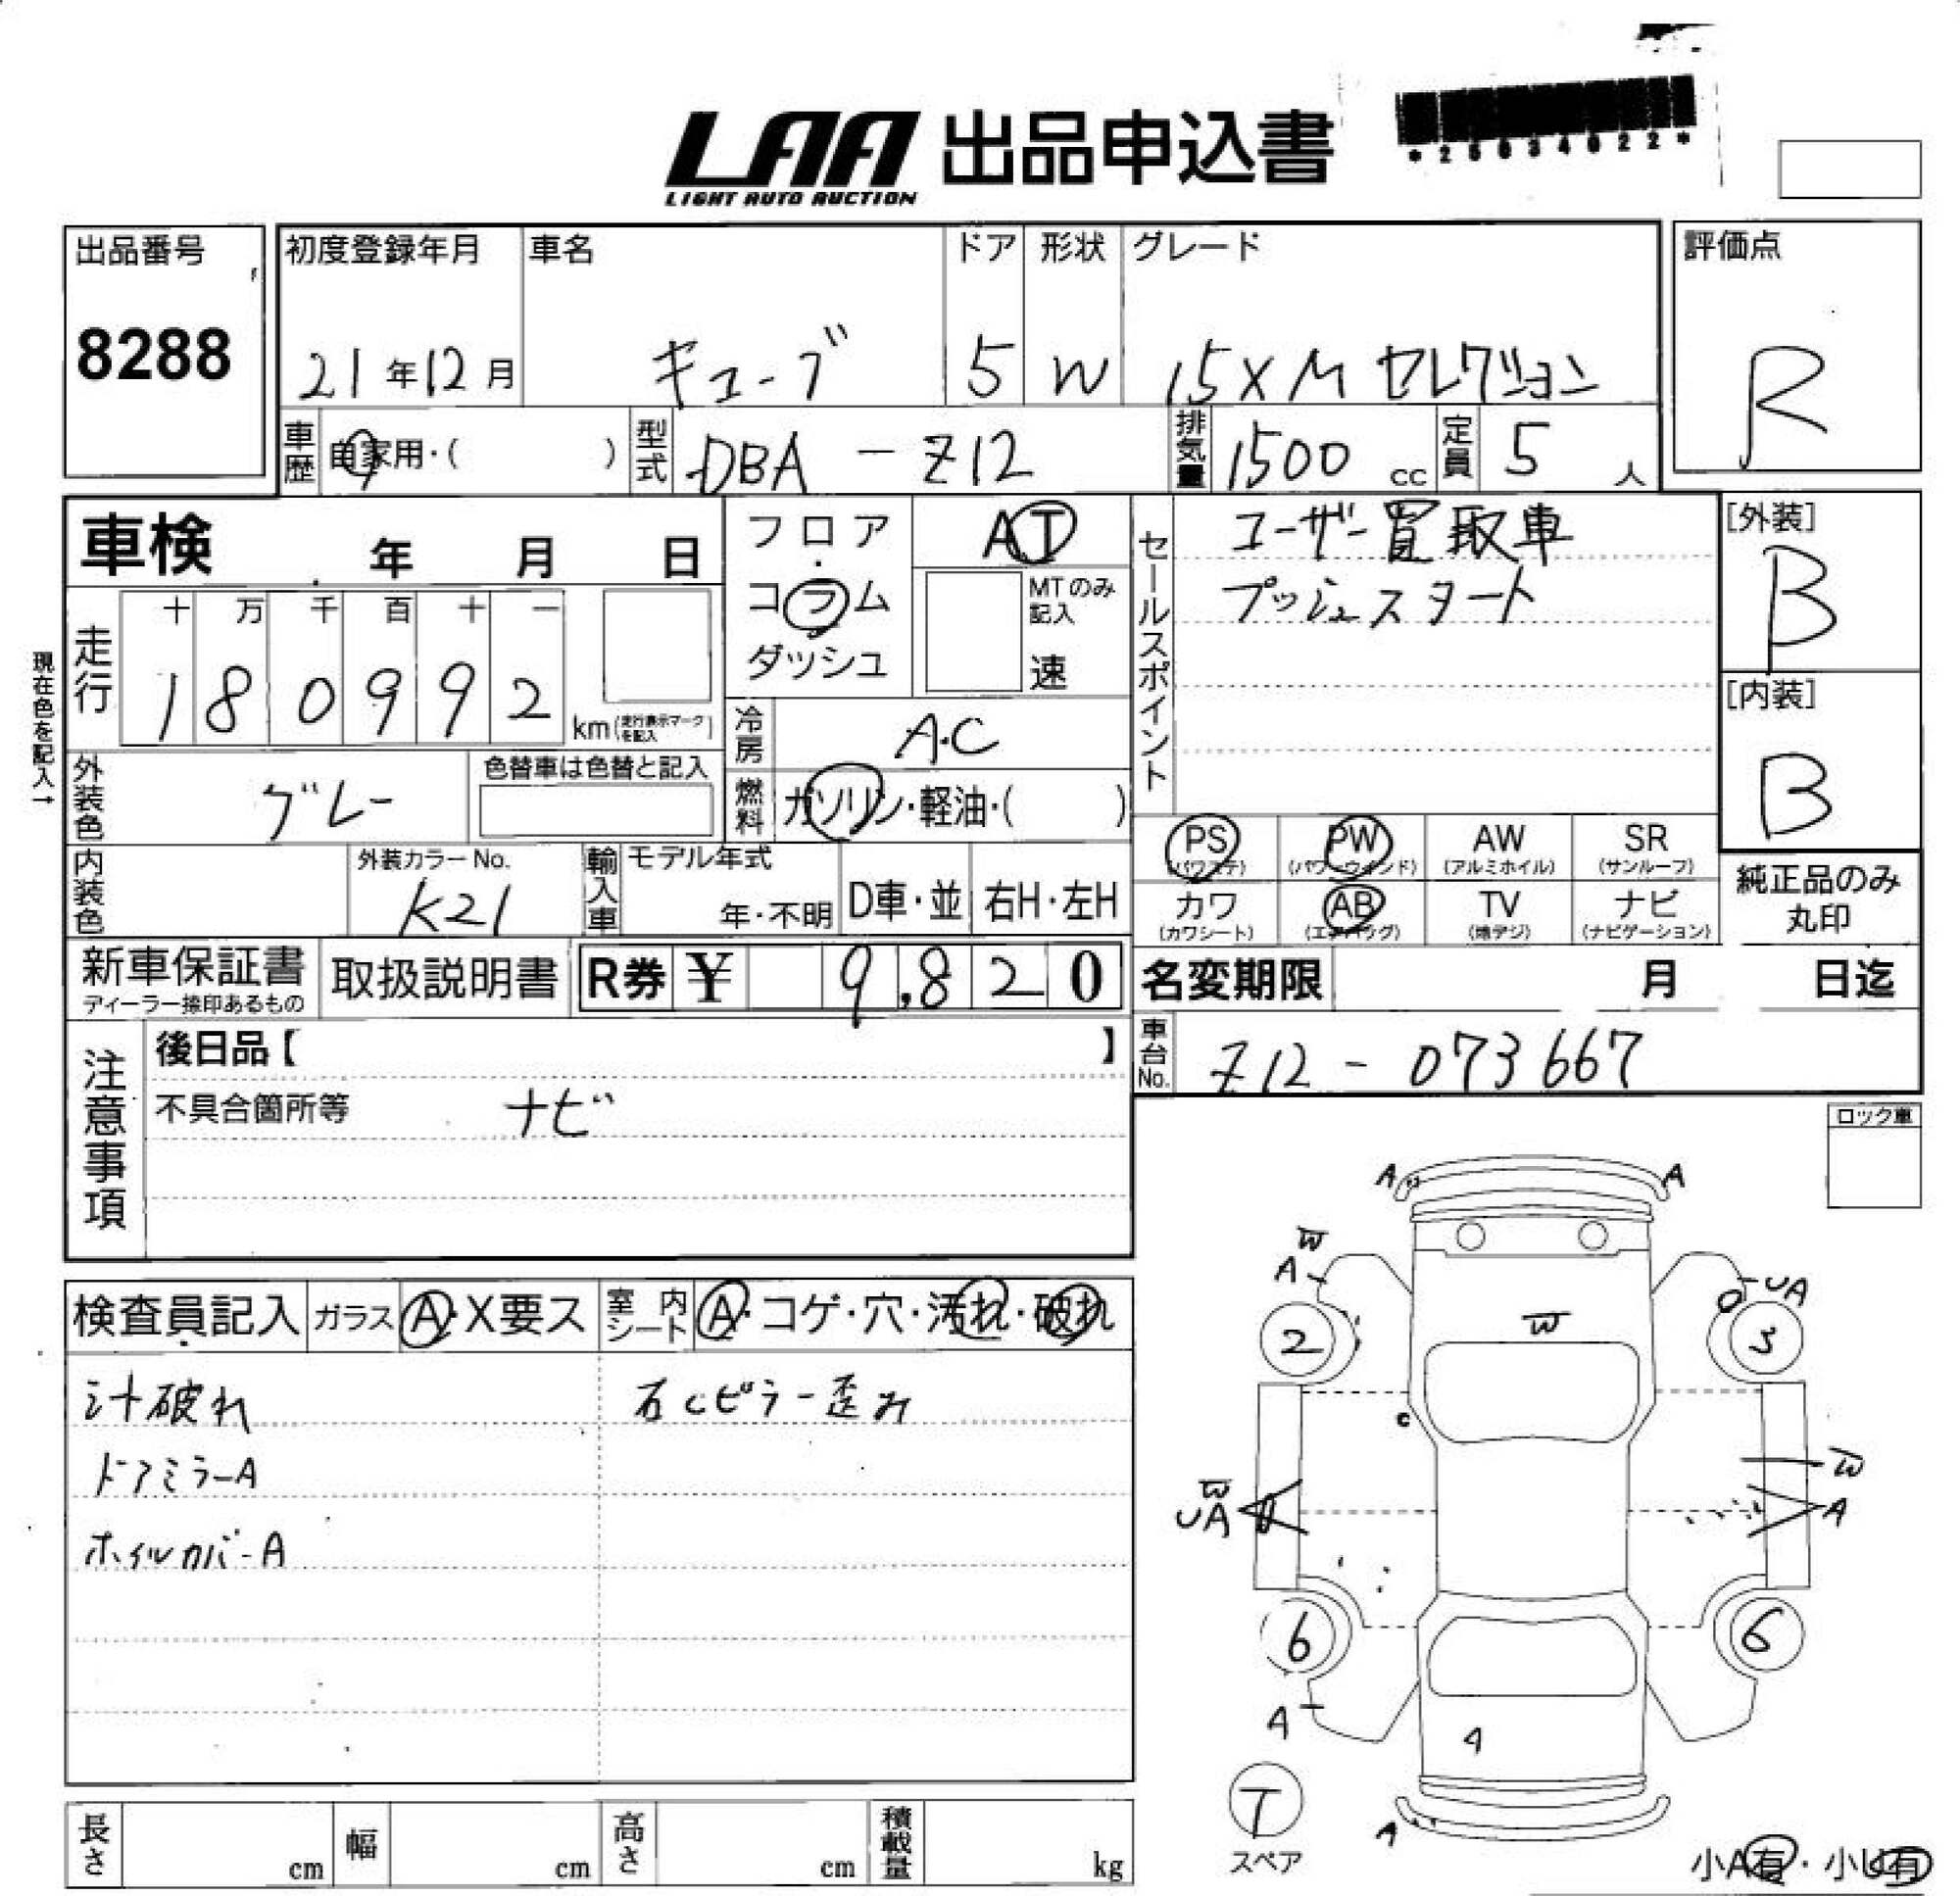 LAA 出品申込書
LIGHT AUTO AUCTION
*25034022*
出品番号
8288
初度登録年月
21年12月
車名
キューブ
ドア
5
形状
W
グレード
15X M セレクション
評価点
R
車歴
自家用・( )
型式
DBA - Z12
排気量
1500 cc
定員
5 人
車検 年 月 日
フロア
コラム
ダッシュ
AT
MTのみ記入
速
セールスポイント
ユーザー買取車
プッシュスタート
[外装]
B
[内装]
B
現在色を記入→
走行
十 万 千 百 十 一
1 8 0 9 9 2
km(走行表示マークを記入)
冷房
A.C
燃料
ガソリン・軽油・( )
外装色
グレー
色替車は色替と記入
内装色
外装カラーNo.
K21
輸入車
モデル年式
年・不明
D車・並
右H・左H
PS
(パワステ)
PW
(パワーウインド)
AW
(アルミホイル)
SR
(サンルーフ)
カワ
(カワシート)
AB
(エアバッグ)
TV
(地デジ)
ナビ
(ナビゲーション)
純正品のみ
丸印
新車保証書
ディーラー捺印あるもの
取扱説明書
R券 ¥ 9,820
名変期限 月 日迄
車台No.
Z12 - 073667
注意事項
後日品【 】
不具合箇所等 ナビ
ロック車
検査員記入
ガラス
A・X要ス
室内シート
A・コゲ・穴・汚れ・破れ
シート破れ
右Cピラー歪み
ドアミラーA
ホイルカバーA
A A
W
A
UA
2
W
3
C
W
UA
W
A
6
6
A
A
T
スペア
A
小A有・小U有
長さ cm
幅 cm
高さ cm
積載量 kg